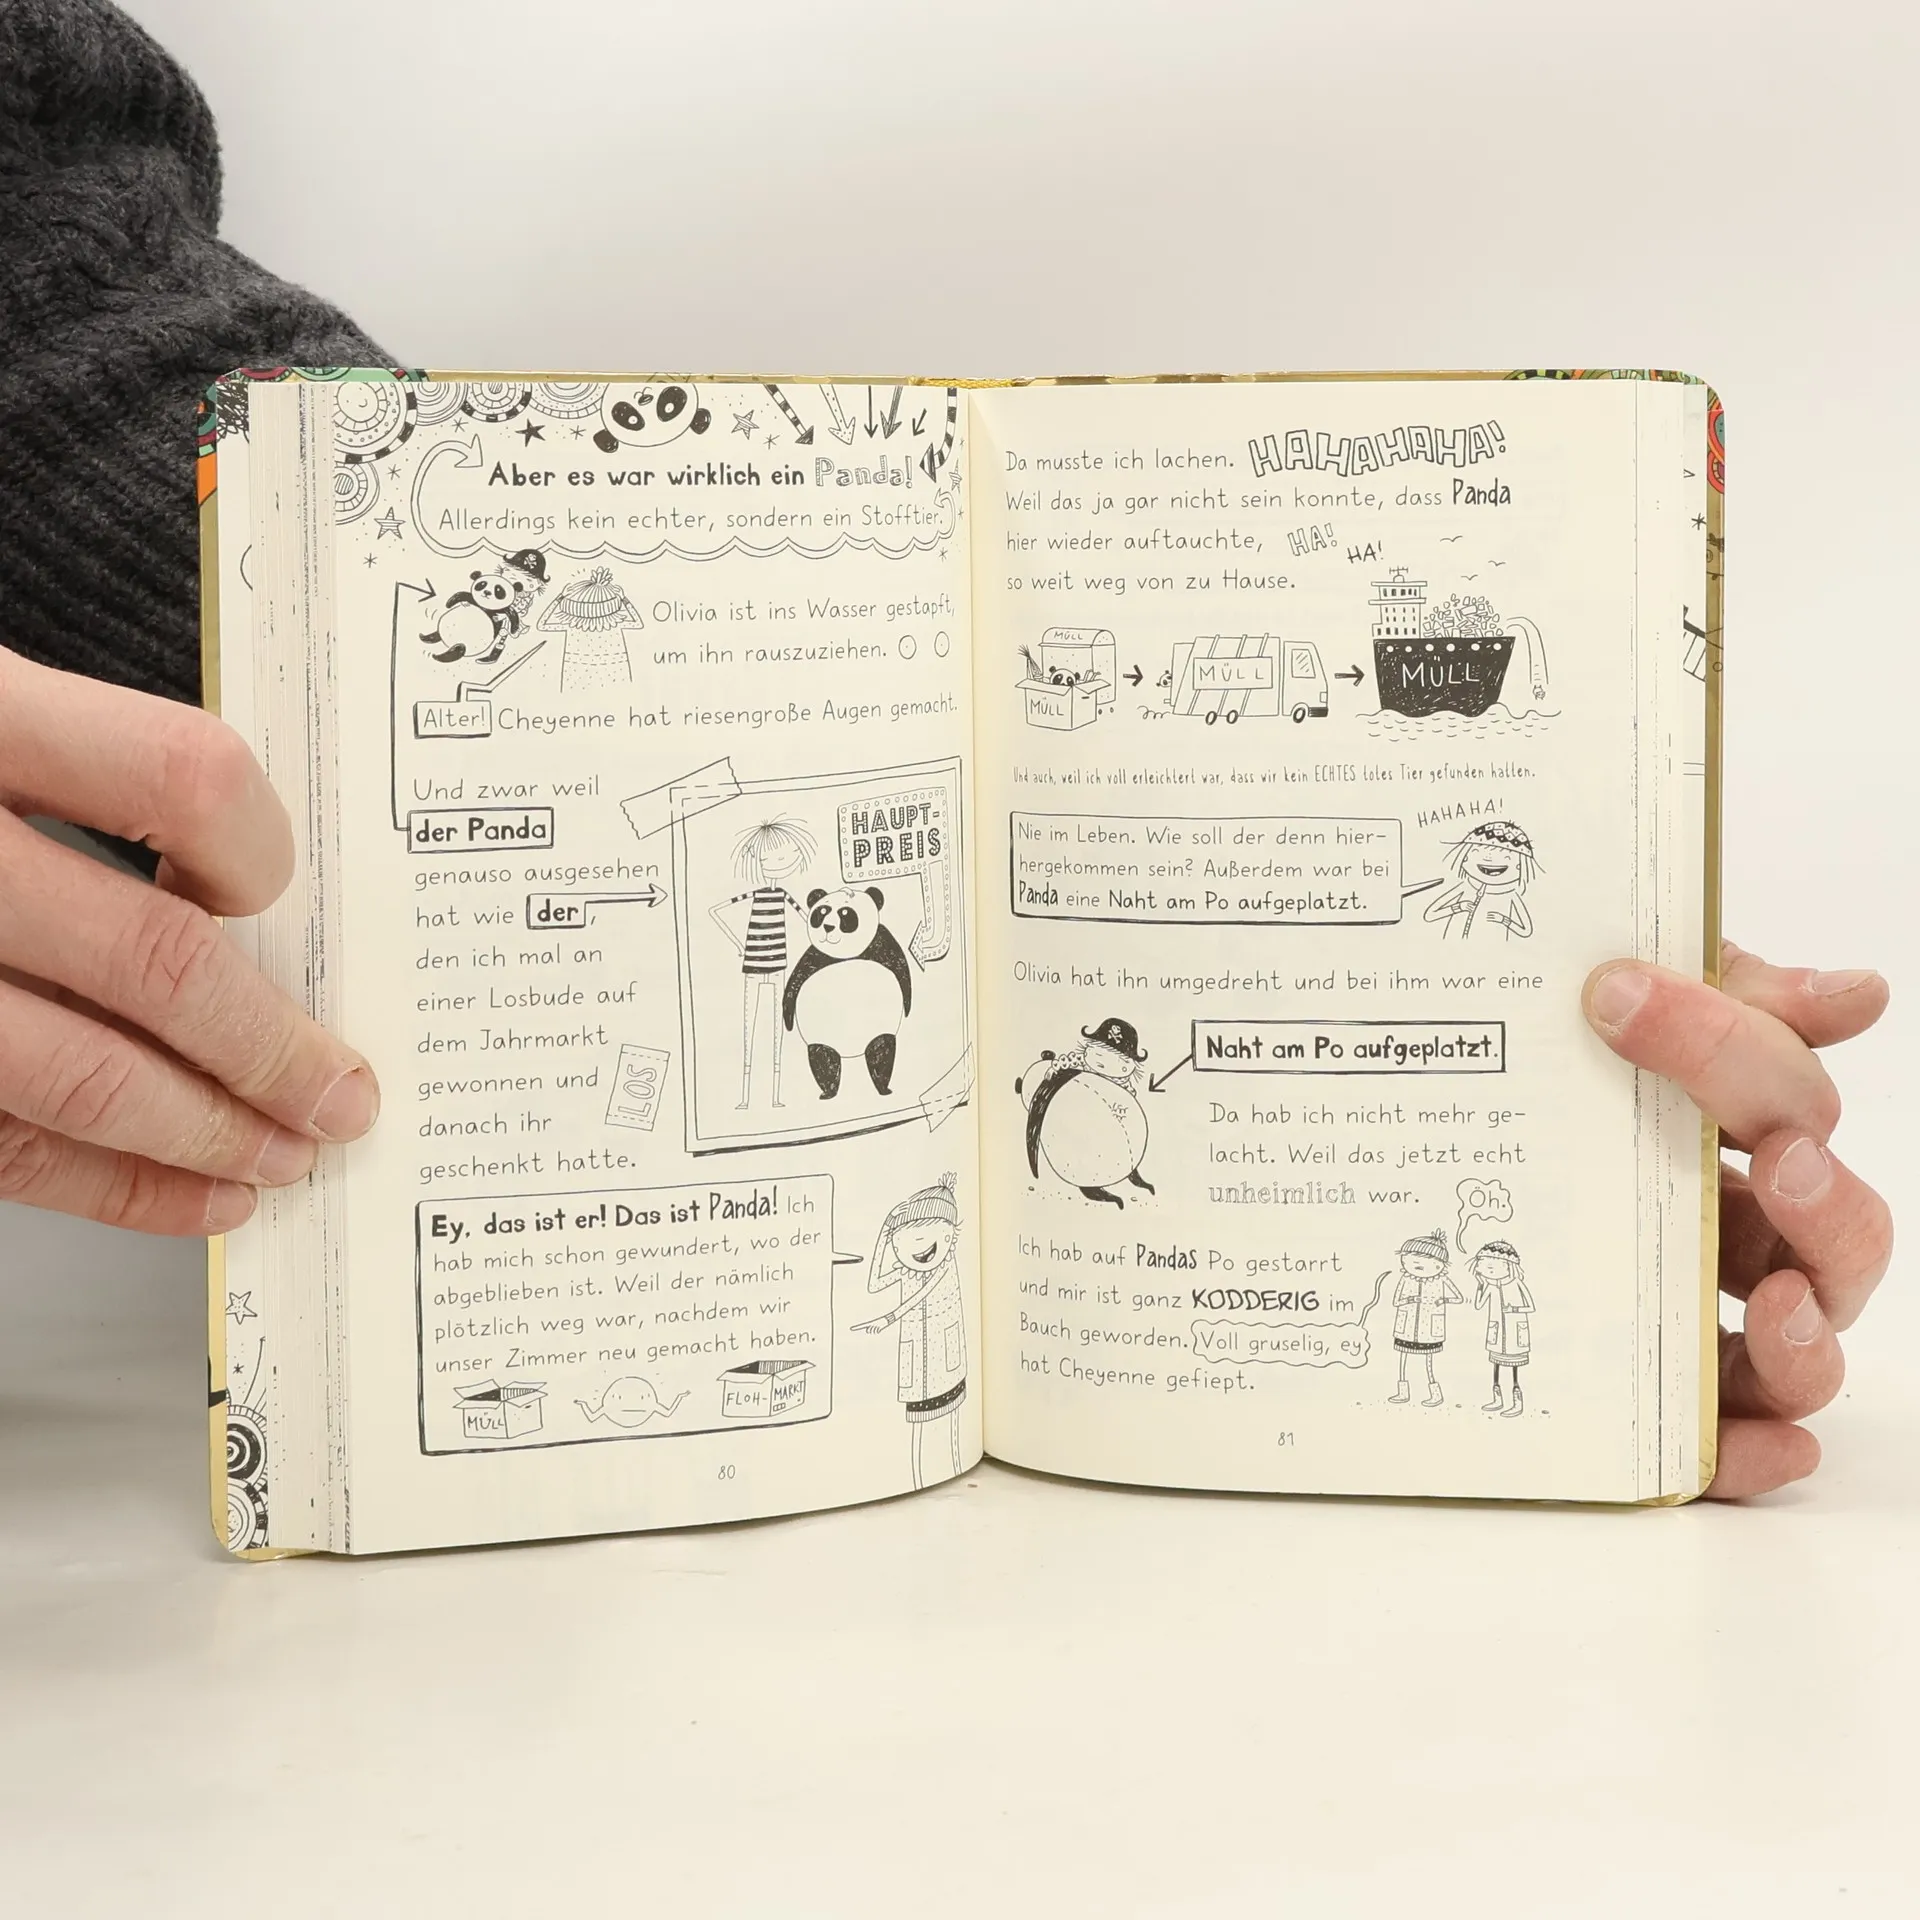 Aber es war wirklich ein Panda!
Allerdings kein echter, sondern ein Stofftier.
Olivia ist ins Wasser gestapft,
um ihn rauszuziehen.
Alter! Cheyenne hat riesengroße Augen gemacht.
Und zwar weil
der Panda
genauso ausgesehen
hat wie der,
den ich mal an
einer Losbude auf
dem Jahrmarkt
gewonnen und
danach ihr
geschenkt hatte.
LOS
HAUPT-
PREIS
Ey, das ist er! Das ist Panda! Ich
hab mich schon gewundert, wo der
abgeblieben ist. Weil der nämlich
plötzlich weg war, nachdem wir
unser Zimmer neu gemacht haben.
MÜLL
FLOH-MARKT
80
Da musste ich lachen. HAHAHAHA!
Weil das ja gar nicht sein konnte, dass Panda
hier wieder auftauchte, HA! HA!
so weit weg von zu Hause.
MÜLL
MÜLL
MÜLL
MÜLL
Und auch, weil ich voll erleichtert war, dass wir kein ECHTES totes Tier gefunden hatten.
HAHAHA!
Nie im Leben. Wie soll der denn hier-
hergekommen sein? Außerdem war bei
Panda eine Naht am Po aufgeplatzt.
Olivia hat ihn umgedreht und bei ihm war eine
Naht am Po aufgeplatzt.
Da hab ich nicht mehr ge-
lacht. Weil das jetzt echt
unheimlich war.
Öh.
Ich hab auf Pandas Po gestarrt
und mir ist ganz KODDERIG im
Bauch geworden. Voll gruselig, ey
hat Cheyenne gefiept.
81